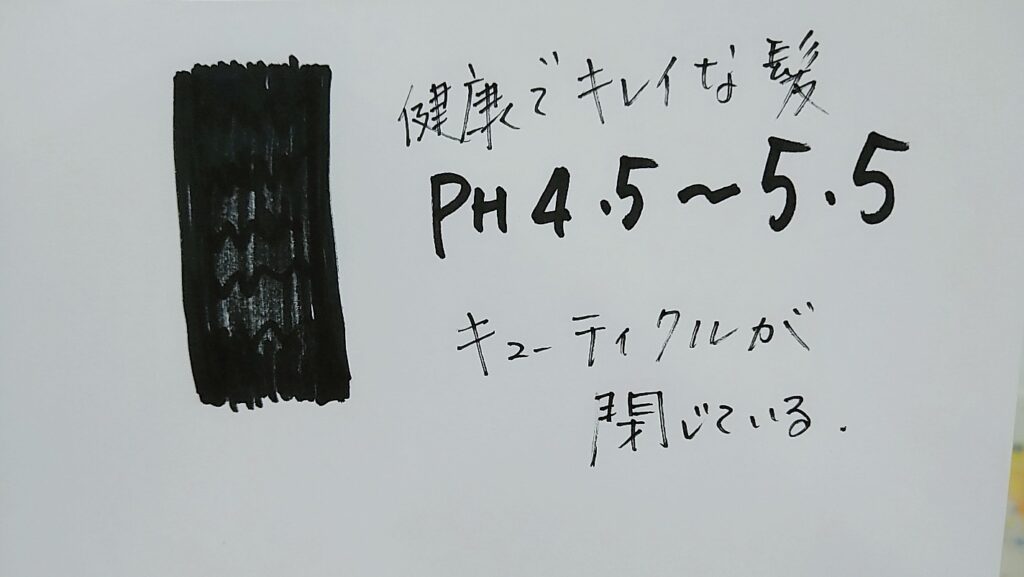 健康でキレイな髪
PH4.5～5.5
キューティクルが
閉じている.